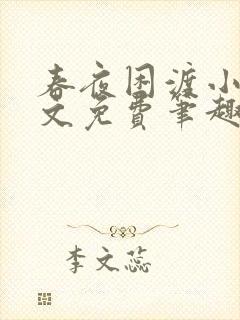 春夜困渡小
文免费笔趣
李文蕊